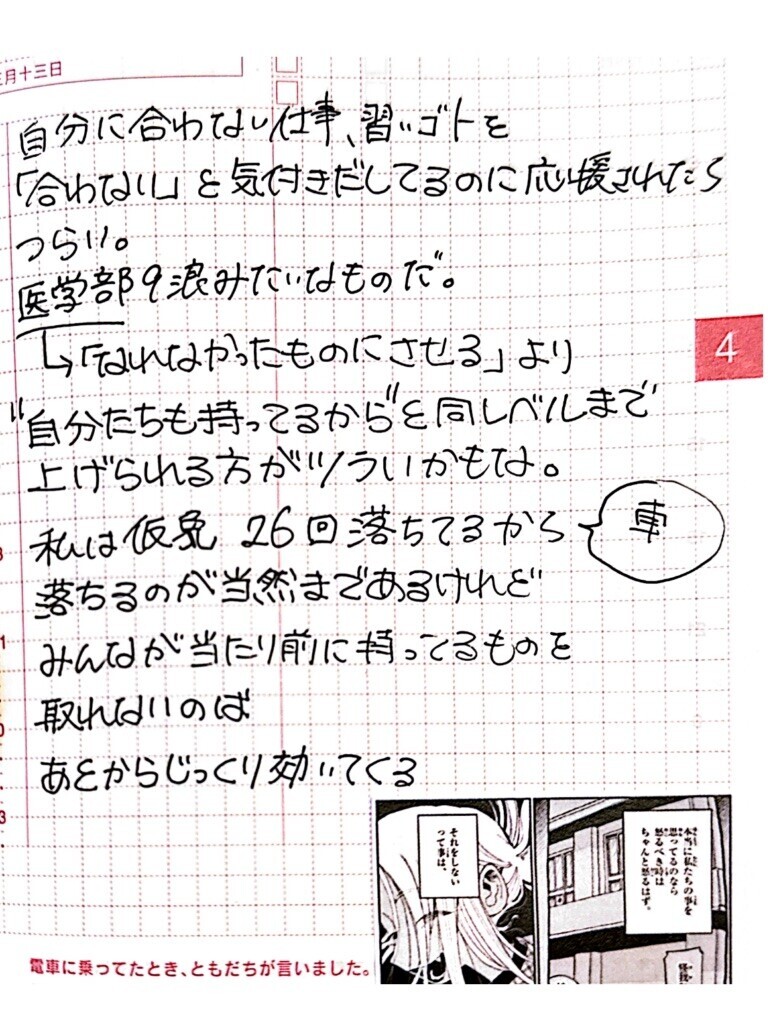 月十三日
自分に合わない仕事、習いゴトを
「合わない」と気付きだしてるのに応援されたら
つらい。
医学部9浪みたいなものだ。
↳「なれなかったものにさせる」より
"自分たちも持ってるから"と同レベルまで
上げられる方がツラいかもな。
私は仮免 26回落ちてるから
車
落ちるのが当然まであるけれど
みんなが当たり前に持ってるものを
取れないのは
あとからじっくり効いてくる
4
3
1
0
3
本当に私たちの事を
思ってるのなら
怒るべき時は
ちゃんと怒るはず。
それをしない
って事は、
電車に乗ってたとき、ともだちが言いました。